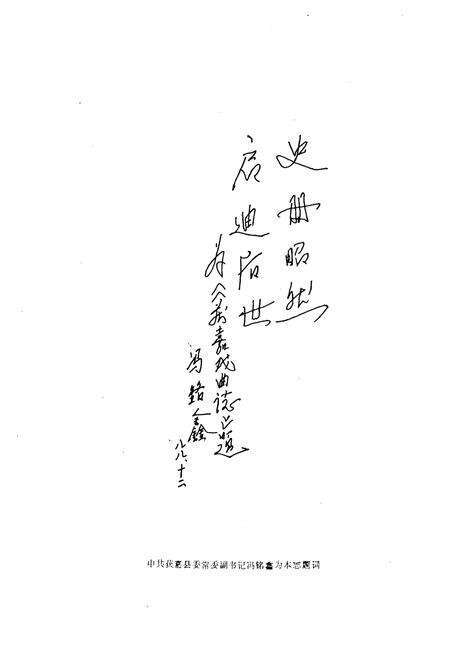 史册昭然
启迪后世
为《获嘉戏曲志》题
冯铭鑫
八八、十二
中共获嘉县委常委副书记冯铭鑫为本志题词